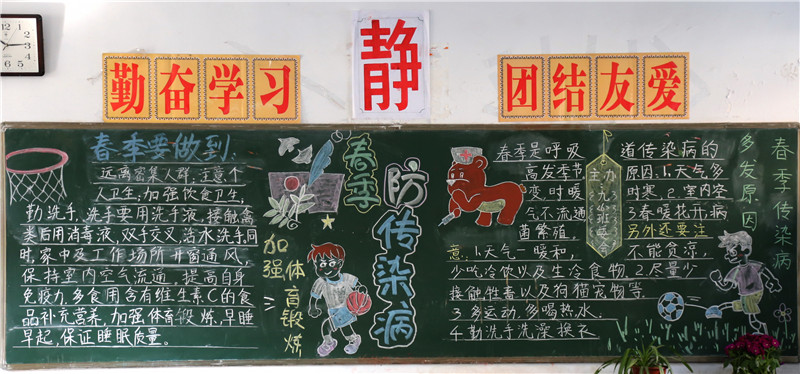 勤奋学习
静
团结友爱
春季要做到:
远离密集人群,注意个
人卫生;加强饮食卫生,
勤洗手、洗手要用洗手液,接触禽
类后用消毒液,双手交叉,活水洗手,同
时,家中及工作场所开窗通风,
保持室内空气流通,提高自身
免疫力,多食用含有维生素C的食
品补充营养,加强体育锻炼,早睡
早起,保证睡眠质量。
加强
体育锻炼
春季
防传染病
春季是呼吸
高发季节
变,时暖
气不流通
菌繁殖
主办
道传染病的
原因:1.天气多
时寒,2.室内空
3.春暖花开,病
另外还要注
意,1.天气一暖和,
不能贪凉,
少吃冷饮以及生冷食物,2.尽量少
接触,牲畜以及狗猫宠物等.
3.多运动,多喝热水.
4.勤洗手洗澡换衣
多发原因
春季传染病